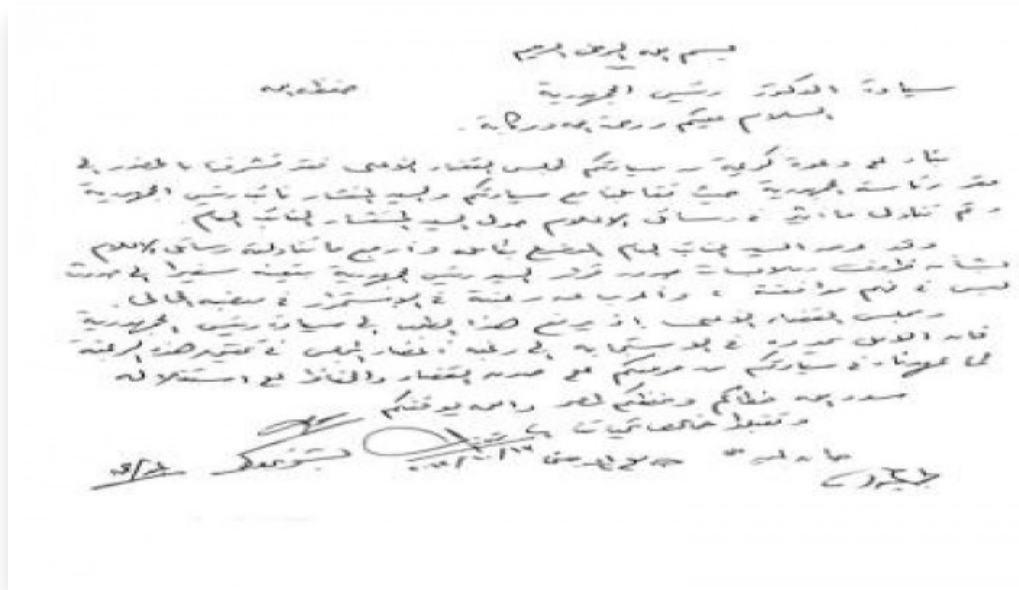 بسم الله الرحمن الرحيم
سيادة الدكتور رئيس الجمهورية حفظه الله
السلام عليكم ورحمة الله وبركاته .
بناء على دعوة كريمة من سيادتكم لمجلس القضاء الأعلى فقد تشرفنا بالحضور إلى
مقر رئاسة الجمهورية حيث تقابلنا مع سيادتكم والسيد المستشار نائب رئيس الجمهورية
وتم تناول ما أثير في وسائل الإعلام حول السيد المستشار النائب العام
وقد عرض السيد النائب العام الموضوع وأرجع ما تناولته وسائل الإعلام
بشأن ظروف وملابسات صدور قرار السيد رئيس الجمهورية بتعيينه سفيرا إلى حدوث
لبس في فهم موافقته ، وأعرب عن رغبته في الاستمرار في منصبه الحالي .
ومجلس القضاء الأعلى إذ يرفع هذا الطلب إلى سيادة رئيس الجمهورية
فإن الأمل يحدوه في الاستجابة إلى رغبة أعضاء المجلس في تحقيق هذه الرغبة
لما عهدناه في سيادتكم من حرصكم على القضاء والحفاظ على استقلاله
سدد الله خطاكم وحفظكم لمصر والله يوفقكم
وتقبلوا خالص تحيات